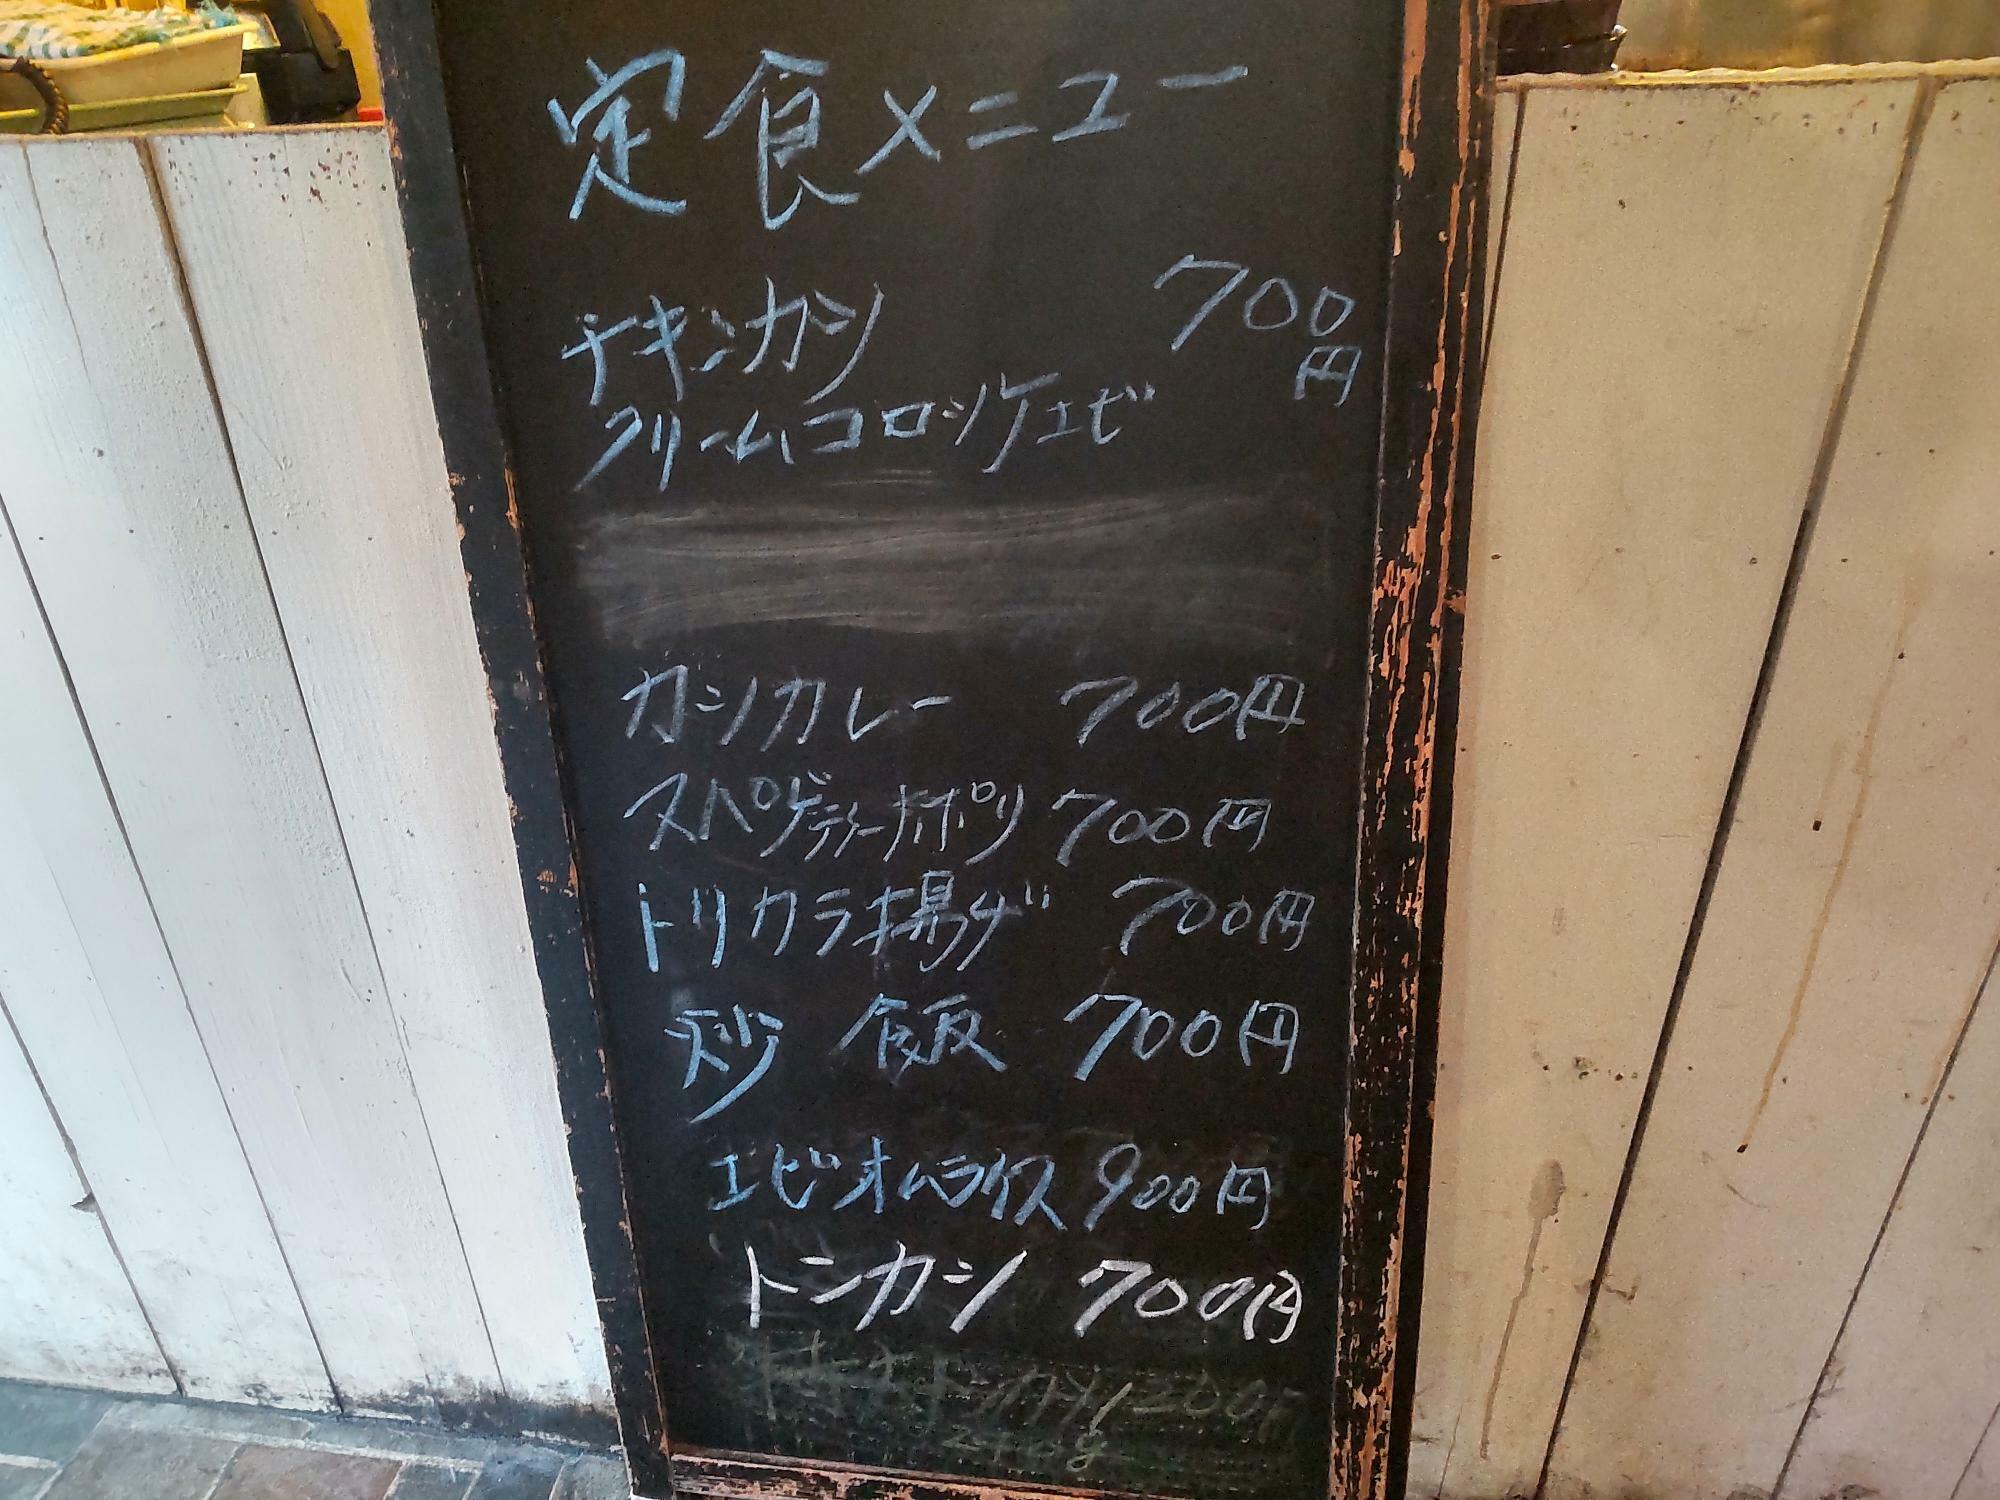 定食メニュー
チキンカツ 700円
クリームコロッケエビ
カツカレー 700円
スパゲティーナポリ 700円
トリカラ揚げ 700円
炒飯 700円
エビオムライス 900円
トンカツ 700円